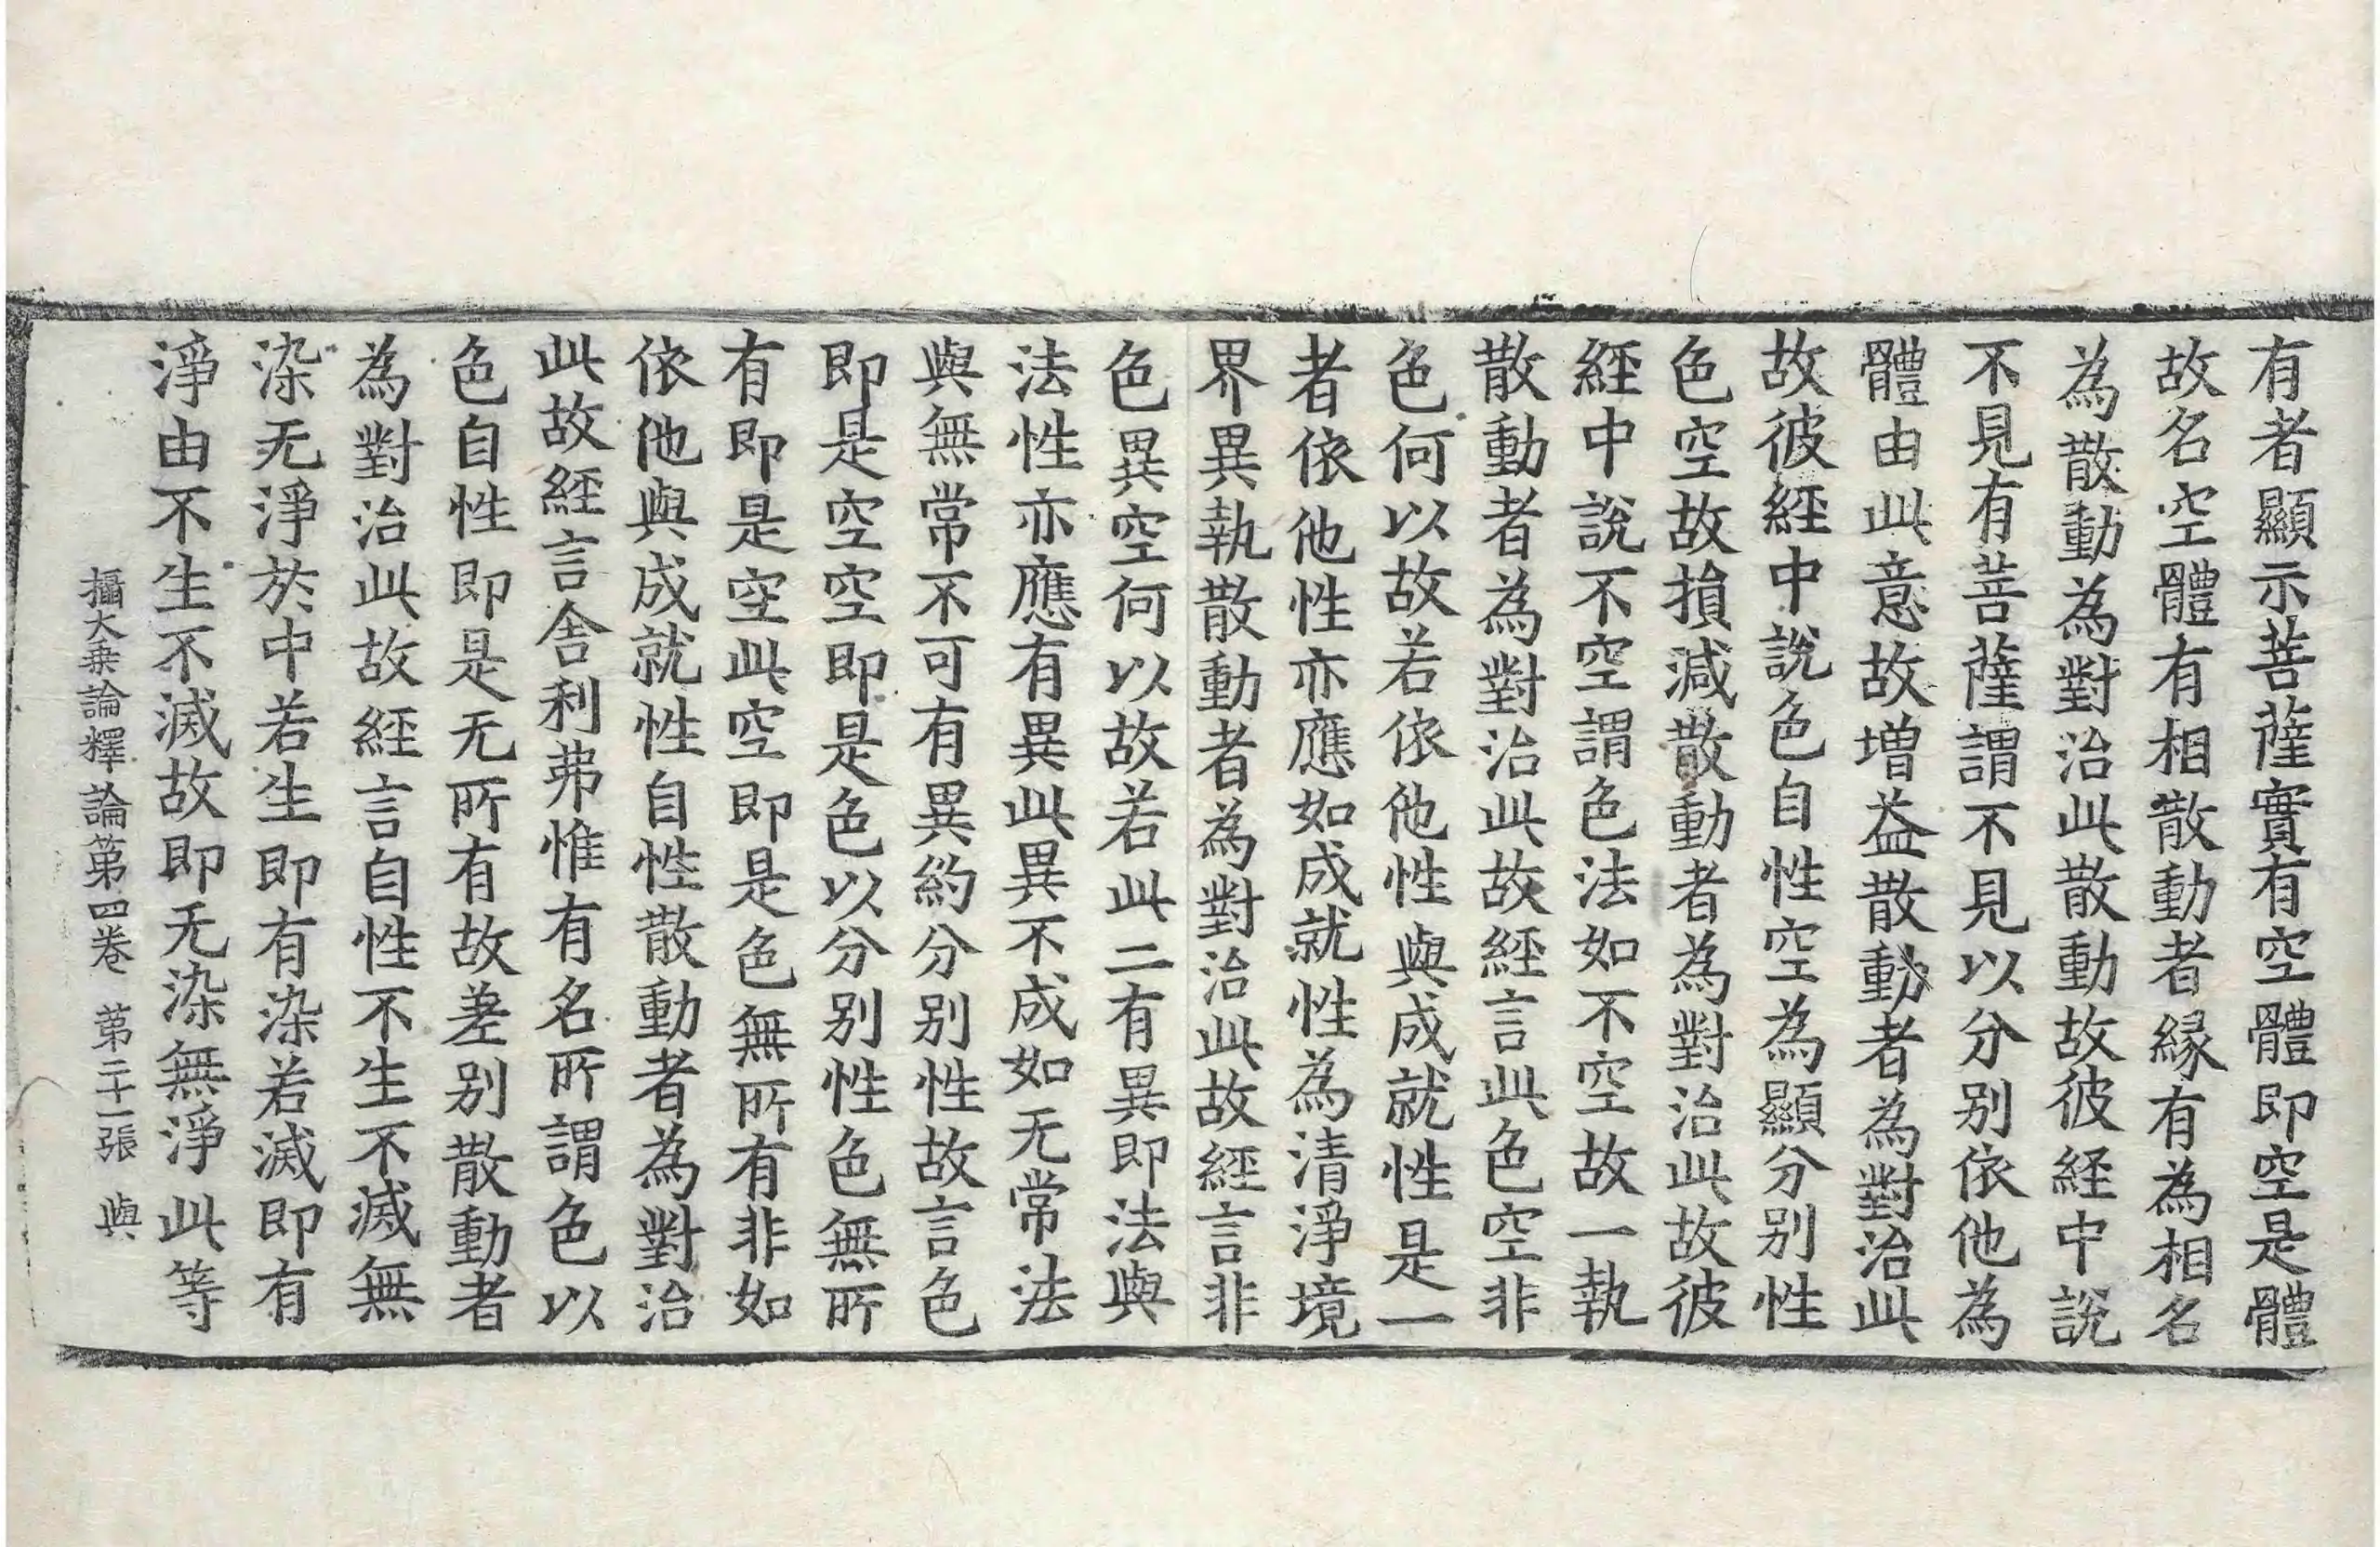 有者顯示菩薩實有空體即空是體
故名空體有相散動者縁有為相名
為散動為對治此散動故彼経中說
不見有菩薩謂不見以分别依他為
體由此意故增益散動者為對治此
故彼経中說色自性空為顯分别性
色空故損減散動者為對治此故彼
経中說不空謂色法如不空故一執
散動者為對治此故経言此色空非
色何以故若依他性與成就性是一
者依他性亦應如成就性為清淨境
界異執散動者為對治此故経言非
色異空何以故若此二有異即法與
法性亦應有異此異不成如无常法
與無常不可有異約分别性故言色
即是空空即是色以分别性色無所
有即是空此空即是色無所有非如
依他與成就性自性散動者為對治
此故経言舍利弗惟有名所謂色以
色自性即是无所有故差别散動者
為對治此故経言自性不生不滅無
染无淨於中若生即有染若滅即有
淨由不生不滅故即无染無淨此等
攝大乗論釋論第四卷 第二十一張 與